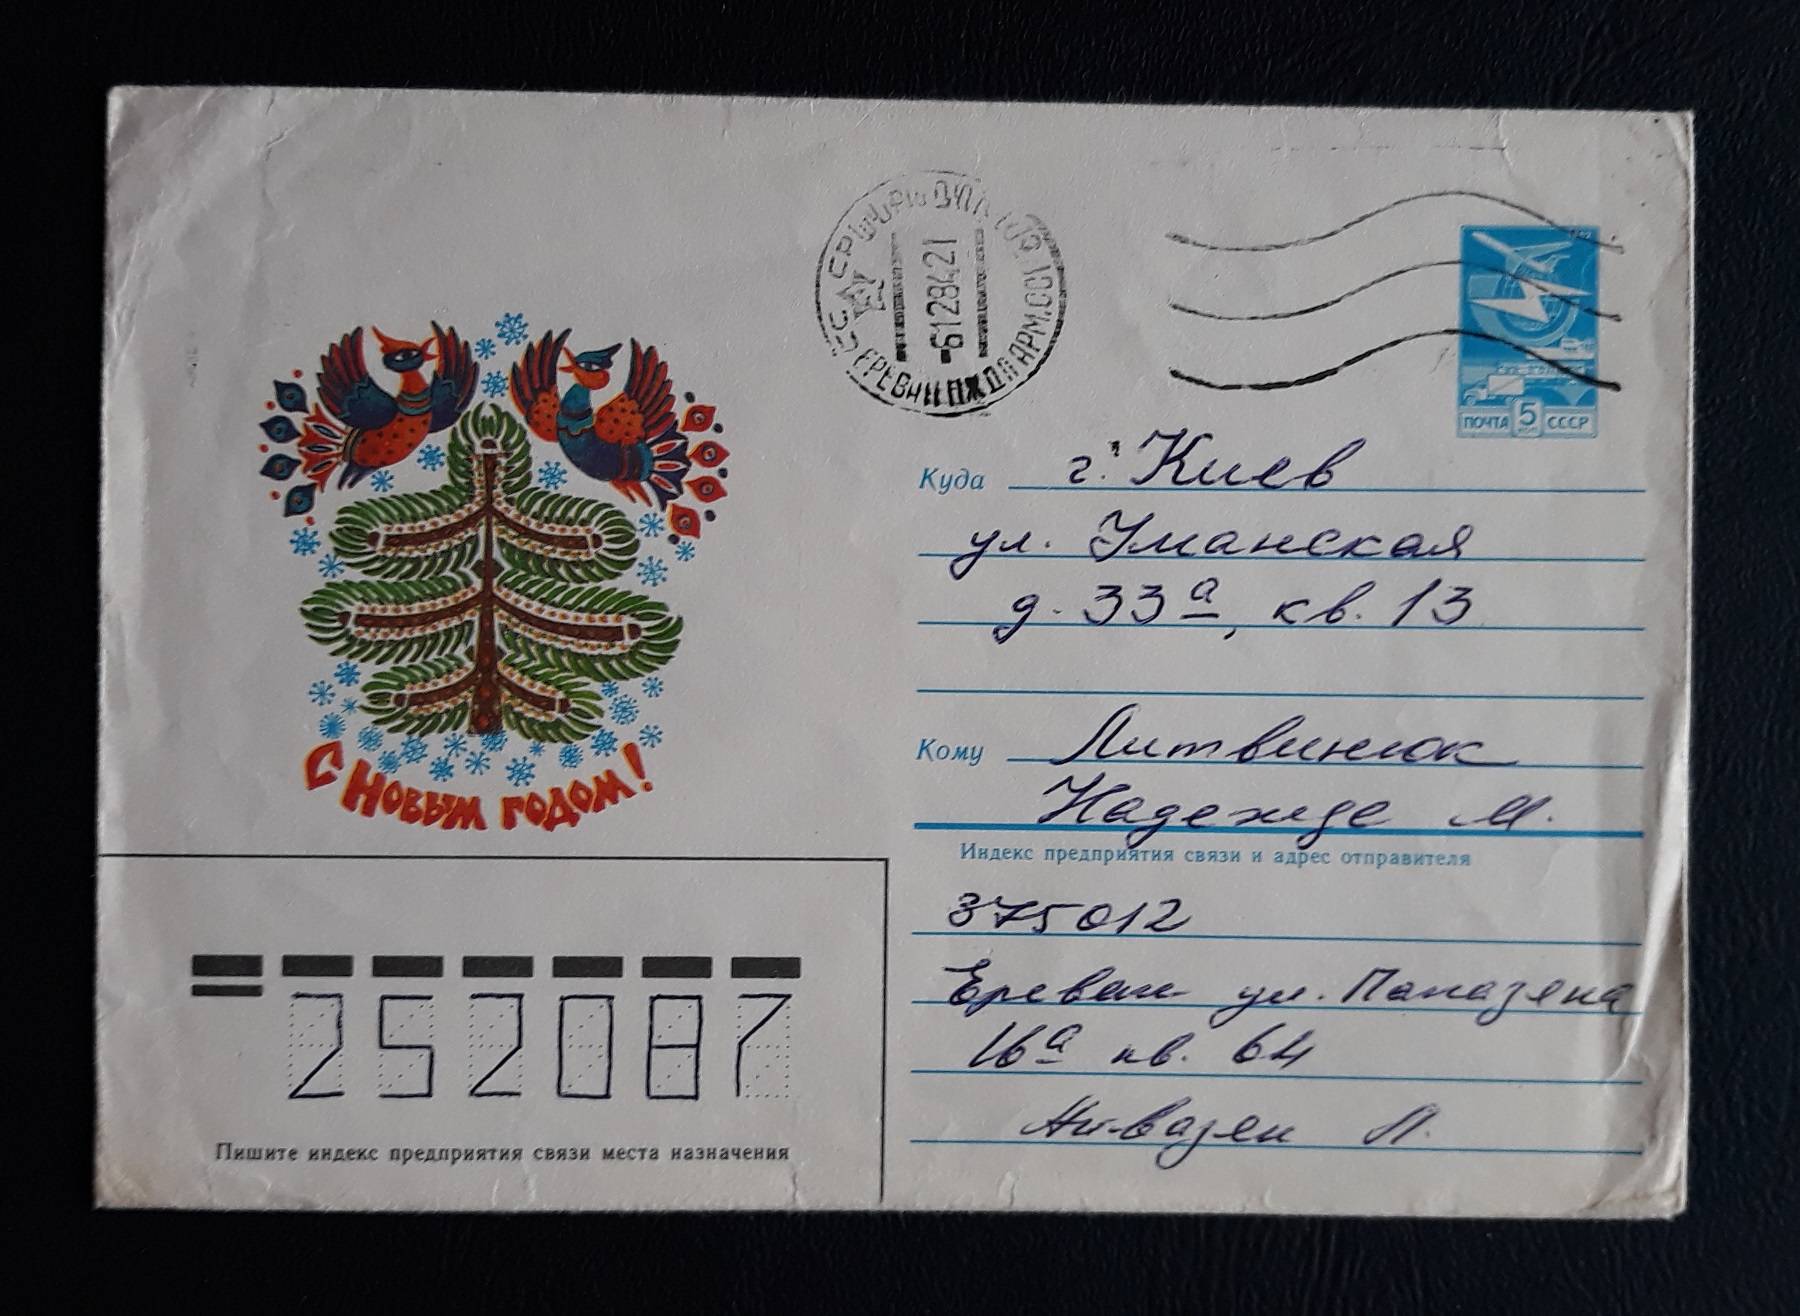 ЕРЕВАН ПЖДП АРМ.ССР
-61284 21
ПОЧТА 5 КОП СССР
Куда г. Киев
ул. Уманская
д. 33а, кв. 13
Кому Литвинюк
Надежде М.
С Новым годом!
Индекс предприятия связи и адрес отправителя
375012
Ереван ул. Папазяна
16а кв. 64
Айвазян Л.
252087
Пишите индекс предприятия связи места назначения